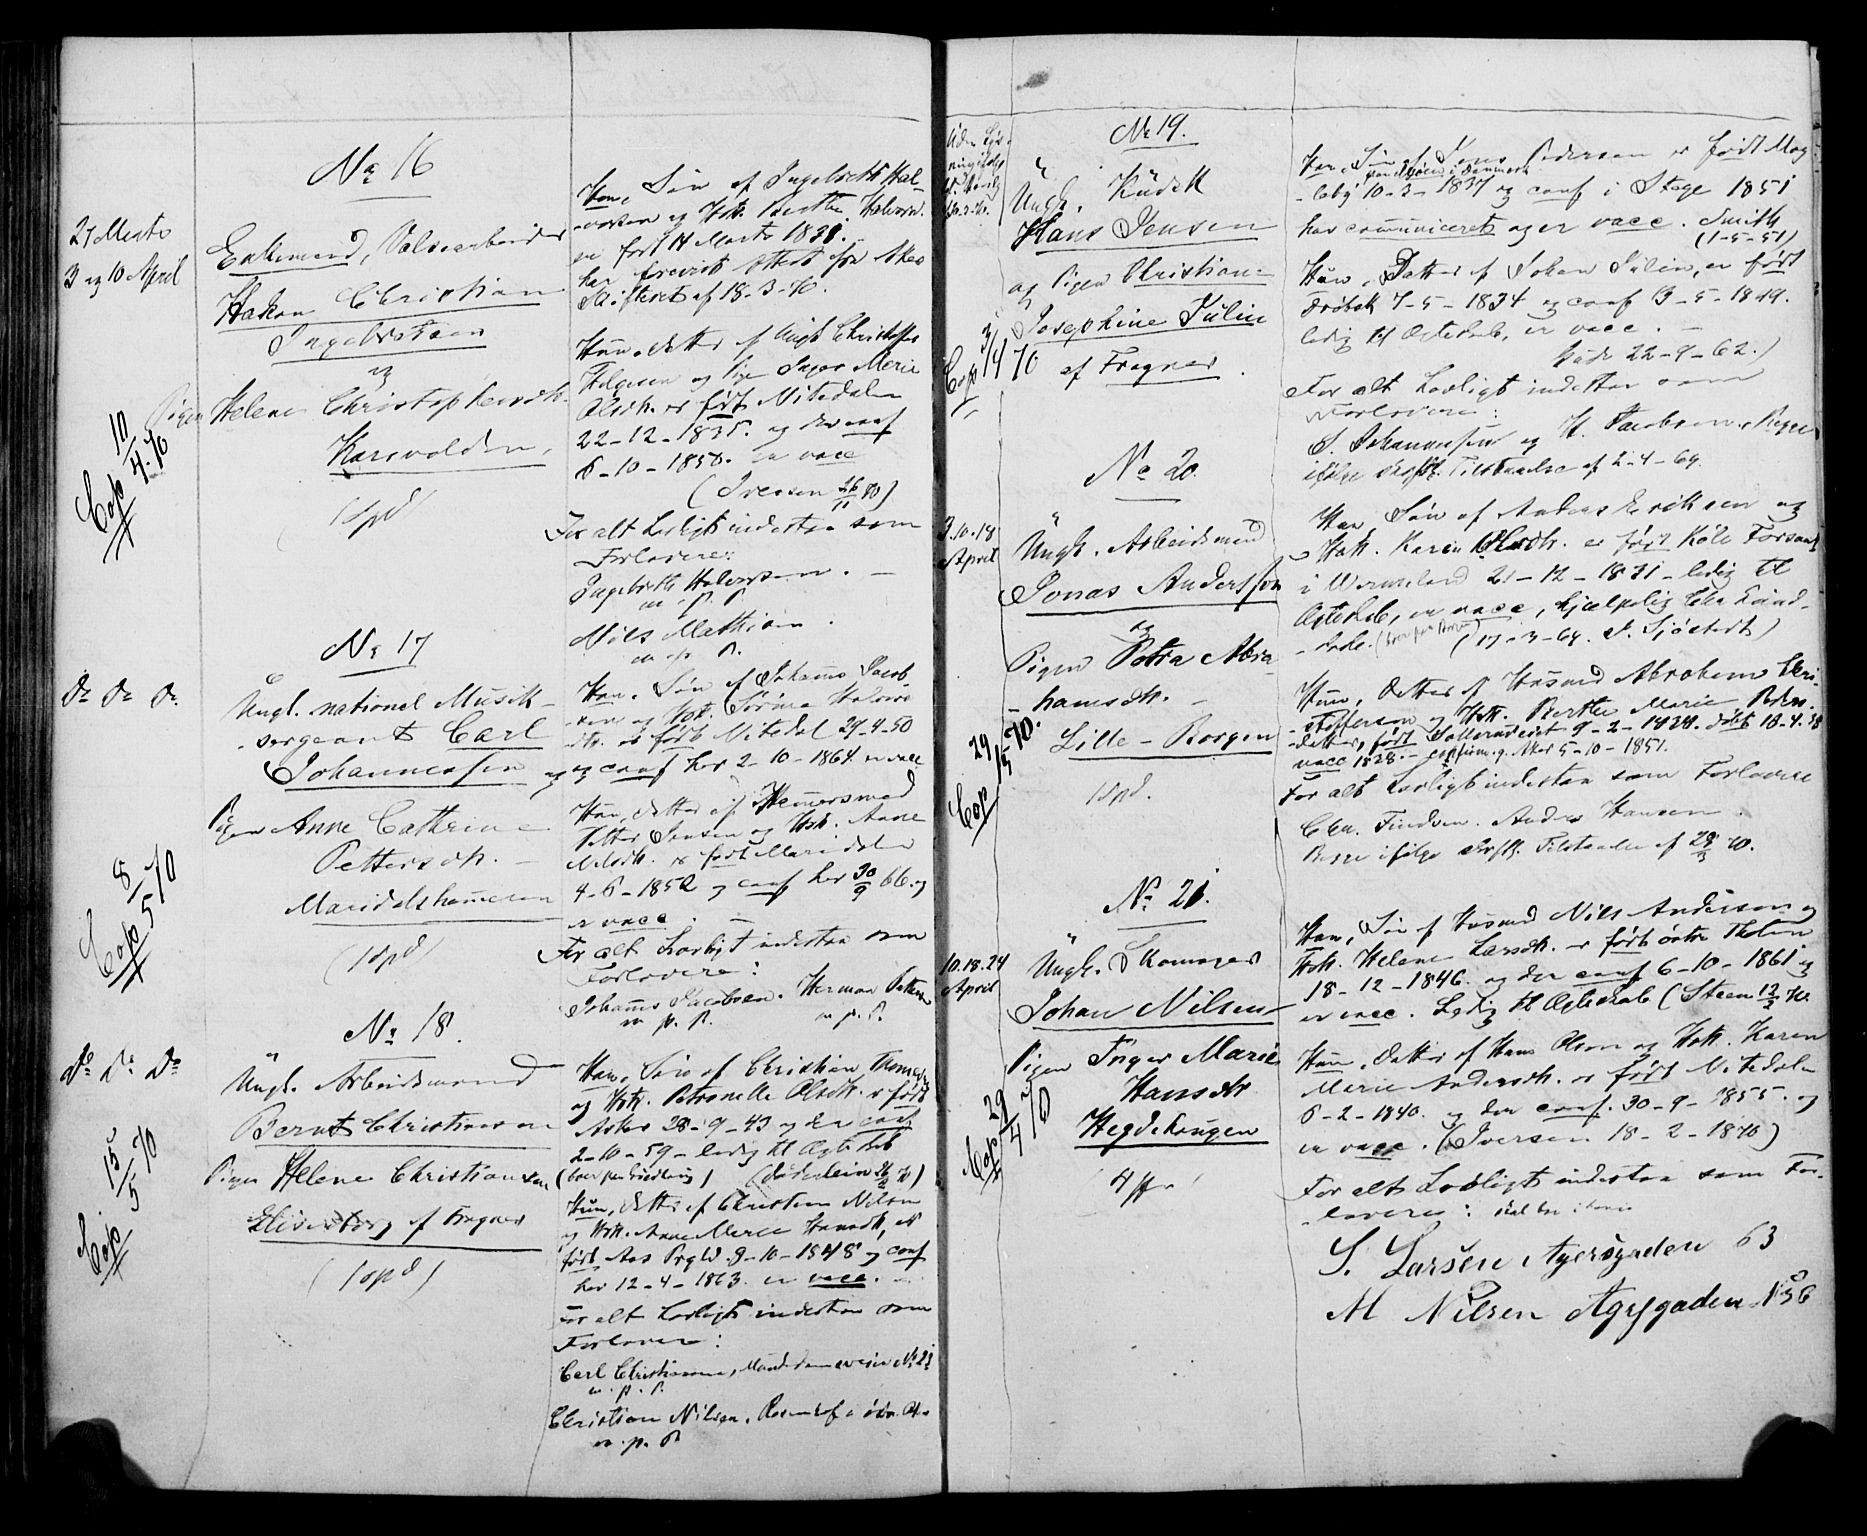 No 16
27 Marts
3 og 10 April
Enkemand, Valsearbeider
Hakon Christian
Ingebretsen
og
Pigen Helene Christophersdtr.
Karsvolden,
(1 spd)
Cop 10/4.70
Han, Søn af Ingebreth Hal-
-vorsen og Hstr. Berthe Halvorsd.
er født
har frevist Attest fra Aker
Skifteret af 18-3-70.
Hun, datter af Ungk Christoffer
Helgesen og Pige Inger Marie
Olsdtr. er født Nitedalen
22-12-1835. og der conf
6-10-1850. er vacc
(Iversen 26/11 70)
For alt Lovligt indestaa som
Forlovere:
Ingebreth Halvorsen. -
m. p. P
Nils Mathisen.
m. p. P.
No 17
do do do.
Ungk. national Musik-
-sergeant Carl
Johannessen og
Pigen Anne Cathrine
Pettersdtr. -
Maridalshammeren
(1 spd)
Cop 8/5 70
Han, Søn af Johannes Jacob-
-sen og Hstr. Sørine Halvors-
dtr. er født Nitedal 29-4-50
og conf her 2-10-1864. er vacc
Hun, datter af Hammersmed
Petter Jensen og Hstr. Anne
Nilsdtr. er født Maridalen
4-6-1852 og conf her 30/9 66. og
er vacc. -
For alt Lovligt indestaa som
Forlovere:
Johannes Jacobsen. Herman Petters
m. p. P. m. p. P.
No 18.
do do do
Ungk. Arbeidsmand
Bernt Christiansen
Pigen Helene Christiansen
Elisenborg af Frogner
(1 spd)
Cop 15/5 70
Han, Søn af Christian Thomes
og Hstr. Petronelle Olsdtr. er født
Asker 28-9-43 og der conf
2-10-59 - ledig til Ægteskab
Hun, datter af Christen Nilsen
og Hstr. Anne Marie Hansdtr, er
født Aas Prgld. 9-10-1848 og conf
her 12-4-1863. er vacc. -
For alt Lovligt indestaa som
Forlovere:
Carl Christiansen,
m. p. P.
Christian Nilsen,
m. p. P
No 19.
Ungk. Kudsk
Hans Jensen
og Pigen Christiane
Josephine Julin
af Frogner.
Cop 3/4 70
Han, Søn af Jens Pedersen er født Mag-
paa Møen i Danmark
-leby 10-3-1837 og conf i Stege 1851
har communiceret og er vacc. Smith
(1-5-51)
Hun, Datter af Johan Julin, er født
Drøbak 7-5-1834 og conf 13-5-1849.
ledig til Ægteskab, er vacc. -
22-9-62.)
For alt Lovligt indestaa som
Forlovere:
S. Johannessen og H. Jacobsen,
ifølge skriftl. Tilstaaelse af 2-4-69.
No 20.
3.10.18
April
Ungk. Arbeidsmand
Jonas Andersson
og
Pigen Petra Abra-
-hamsdtr. -
Lille-Borgen
1 spd.
Cop 29/5 70.
Han, Søn af Anders Eriksen og
Hstr. Karin Olsdtr. er født Köle Forsaml
i Wermeland 21-12-1831 - ledig til
Ægteskab, er vacc,
(17-3-69. Sjöstedt)
Hun, datter af Husmd Abraham Chri-
-stofferson og Hstr. Berthe Marie Peders-
-datter, født 9-2-1828. døbt 18-4-28
vacc 1828. - confirm. g. Aker 5-10-1851.
For alt Lovligt indestaa som Forlovere
Chr. Andrs Hansen.
Begge ifølge skriftl. Tilstaaelse af 28/3 70.
No 21.
10.18.24
April
Ungk. Skomager
Johan Nilsen
Pigen Inger Marie
Hansdtr
Hegdehaugen
Cop 29/4 70
Han, Søn af Husmd Nils Andersen og
Hstr. Helene Larsdtr. er født østre Tholen
18-12-1846. og der conf 6-10-1861 og
er vacc. Ledig til Ægteskab (Steen 12/2 70.
Hun, datter af Hans Olsen og Hstr. Karen
Marie Andersdtr. er født Nitedalen
6-2-1840. og der conf. 30-9-1855. og
er vacc. (Iversen 18-2-1870)
For alt Lovligt indestaa som For-
-lovere:
S. Larsen Agersgaden 63
M Nilsen Agersgaden No 56